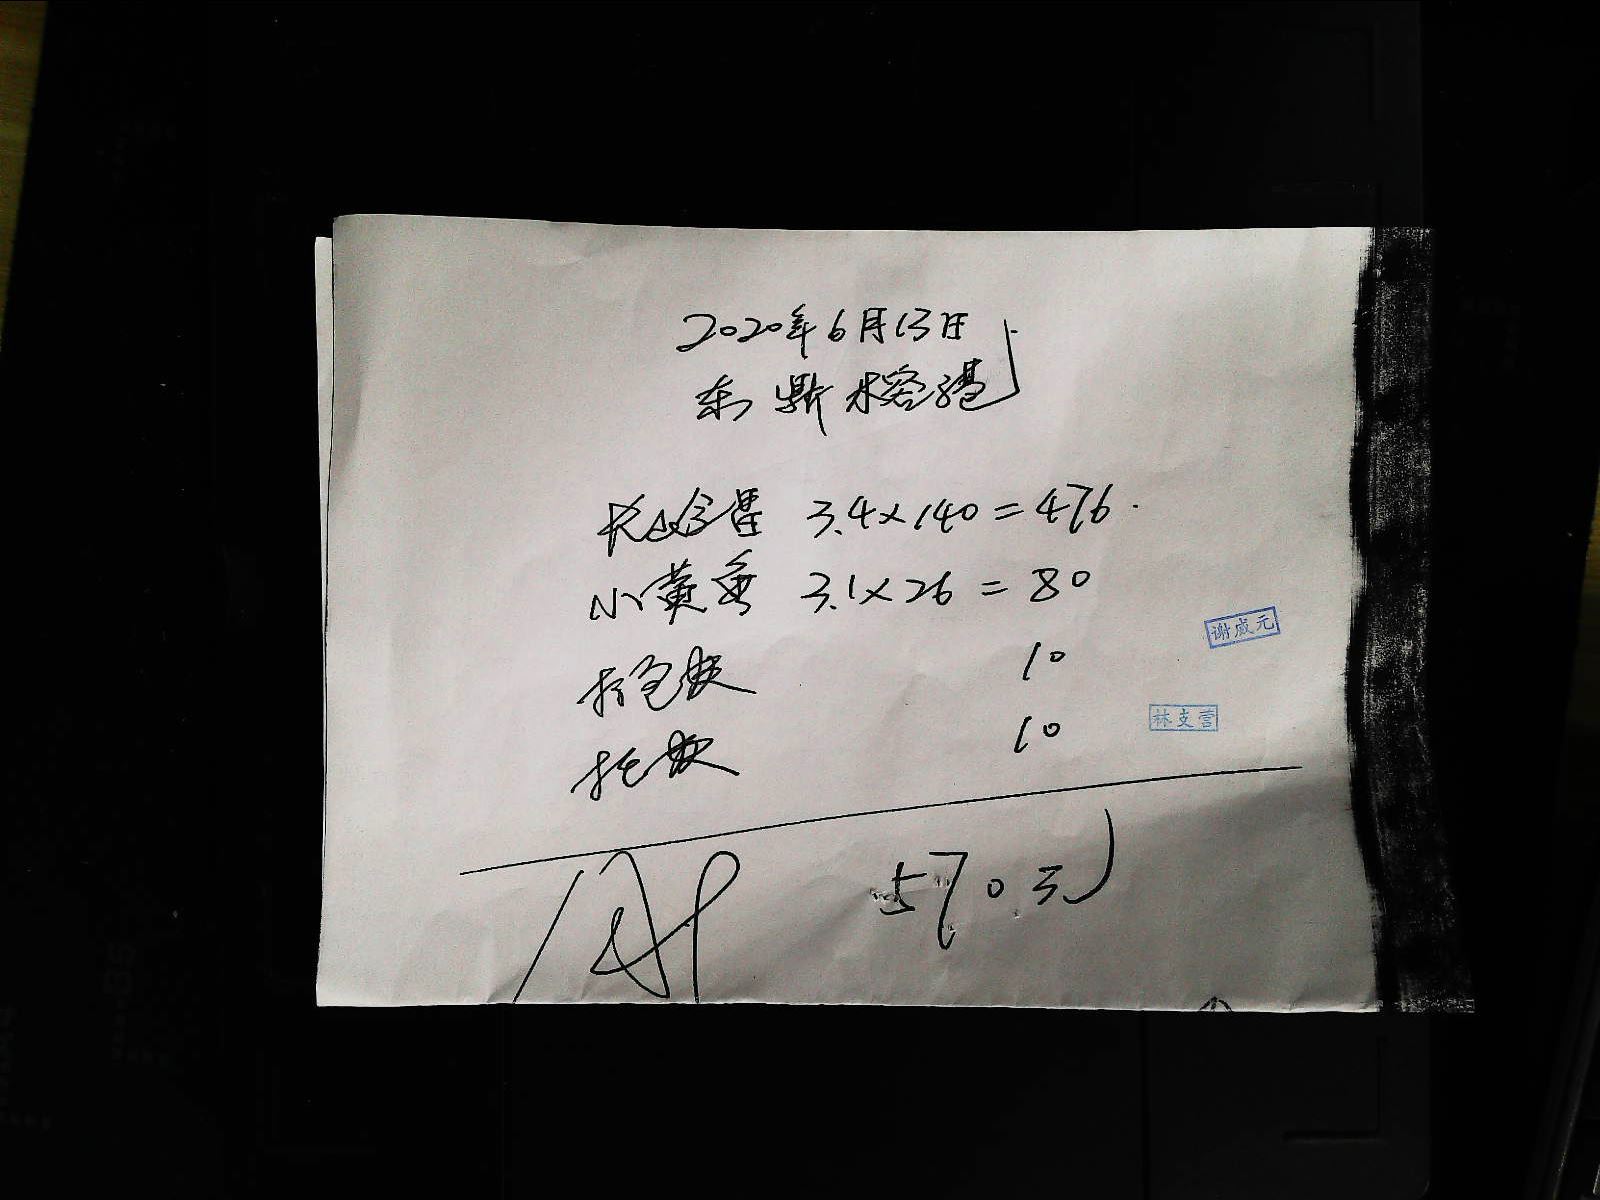 2020年6月13日
东鼎水容港
3.4×140=476.
小黄鱼 3.1×26=80
谢成元
打包费 10
林支营
10
570元